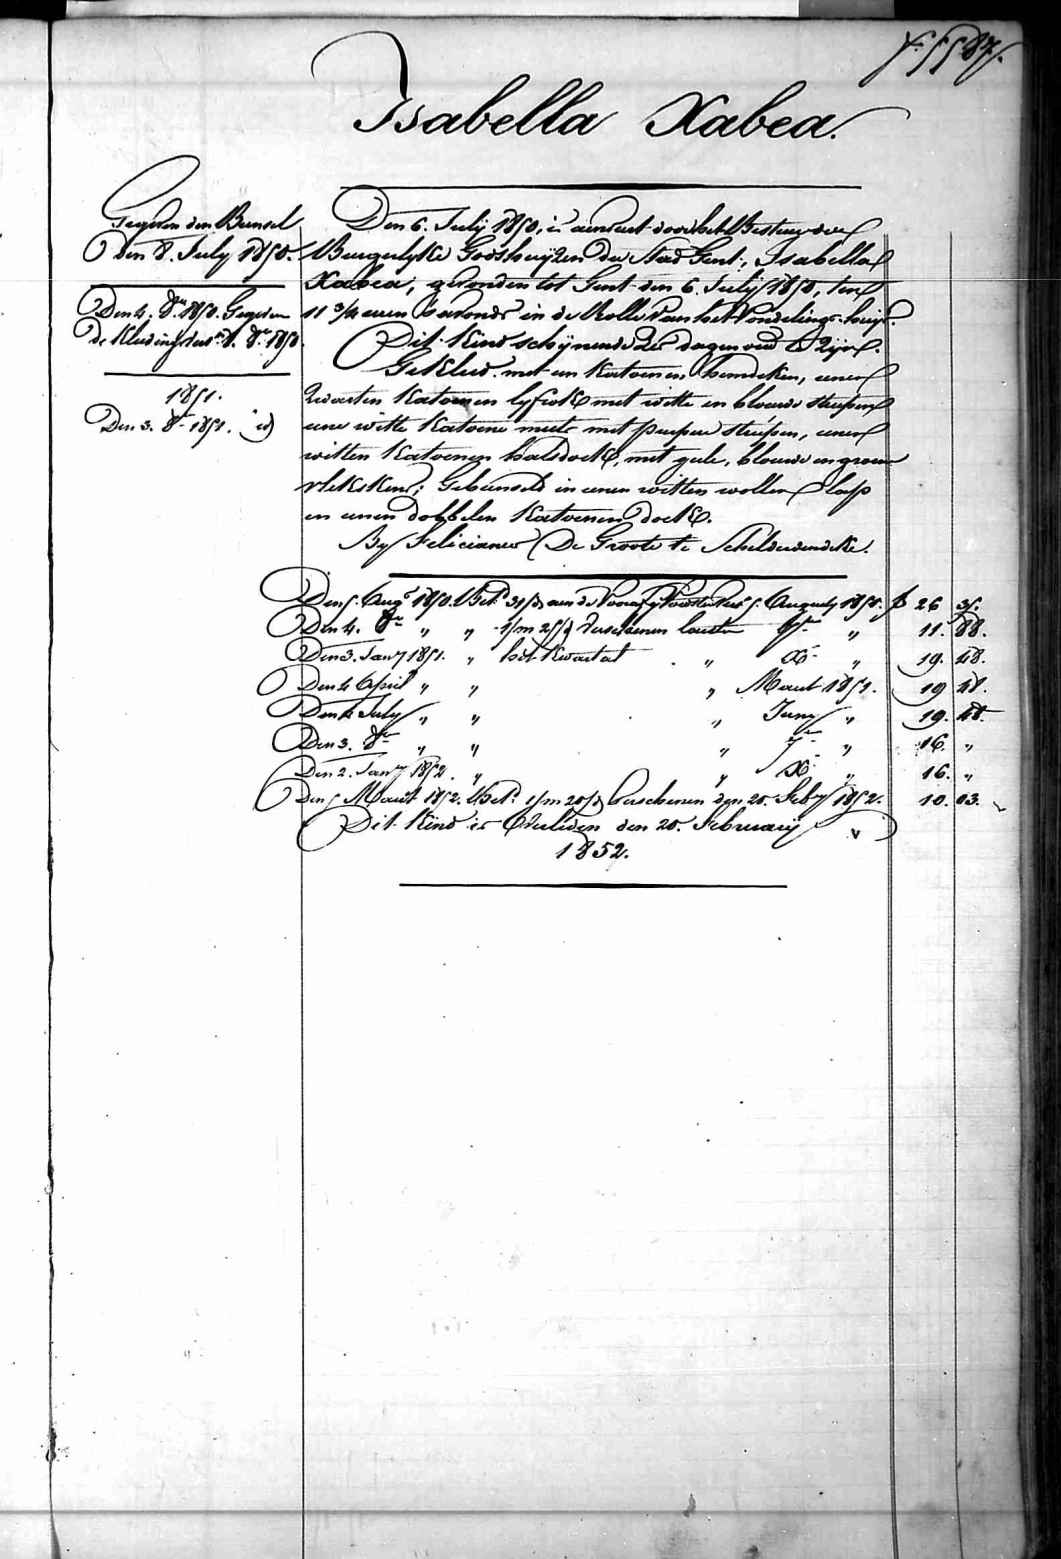 Isabella Xabea.
Gegeven den Bunsel
den 8. July 1850.
Den 4. 8re 1850. Gegeven
de Kleding 8re 1850
1851.
Den 3. 8re 1851. id
Den 6. July 1850, is aenveert door het Bestuer der
Burgerlyke Godshuyzen der Stad Gent, Isabella
Xabea, gevonden tot Gent den 6. July 1850, ten
11 3/4 uren 's avonds in de Rolle van het Vondelingshuys.
Dit Kind schynende dagen oud te zijn.
Gekleed met een Katoenen hemdeken, eenen
zwarten Katoenen lyfrok met witte en blauwe streepen
eene witte Katoene muts met peerse streepen, eenen
witten Katoenen halsdoek, met gele, blauwe en groene
vlekskens; Gebunseld in eenen witten wollen lap
en eenen dobbelen Katoenen doek.
By Feliciaues De Groote te Schelderwindeke.
Den 5. Augt 1850. Bet. aen de Voorsz. Augusty 1850. f 26 35.
Den 4. 8re " " 1/m 25/d verschenen lauter 7re " 11. 88.
Den 3. Jany 1851. " het Kwartal " X. " 19. 48.
Den 4 April " " " Maart 1851. 19 48.
Den 4 July " " " Juny " 19. 48.
Den 3. 8re " " " 7re " 16. "
Den 2. Jany 1852. " " X. " 16. "
Den 5 Maart 1852. Bet. 1/m 20/d verschenen den 20. Feby 1852. 10. 03.
Dit Kind is Overleden den 20. February
1852.